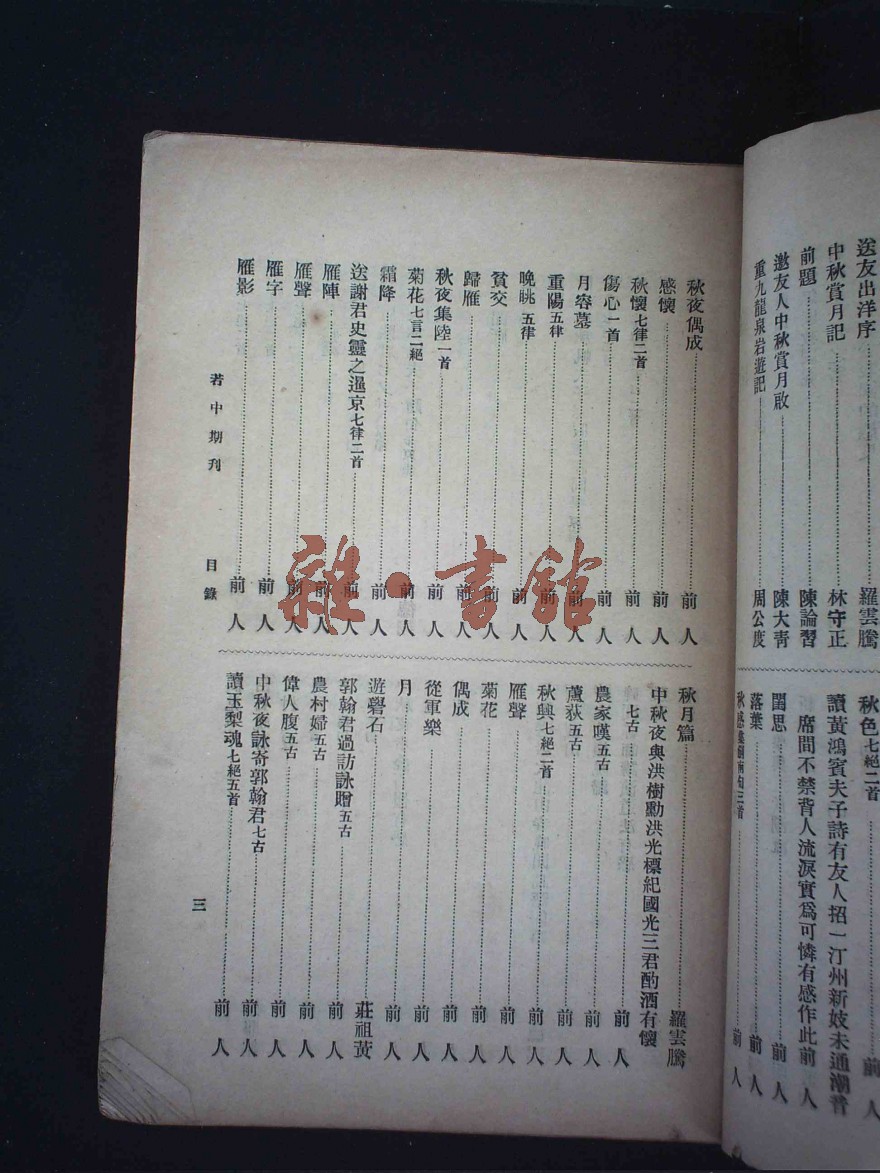 送友出洋序……羅雲騰
中秋賞月記……林守正
前題……陳論習
邀友人中秋賞月啟……陳大靑
重九龍泉岩遊記……周公度
秋色七絕二首……前人
讀黃鴻賓夫子詩有友人招一汀州新妓未通潮音
席間不禁背人流淚實爲可憐有感作此前人
閨思……前人
落葉……前人
秋感……三首……前人
秋夜偶成……前人
感懷……前人
秋懷七律二首……前人
傷心一首……前人
月容墓……前人
重陽五律……前人
晚眺五律……前人
貧交……前人
歸雁……前人
秋夜集陸一首……前人
菊花七言二絕……前人
霜降……前人
送謝君史靈之暹京七律二首……前人
雁陣……前人
雁聲……前人
雁字……前人
雁影……前人
秋月篇……羅雲騰
中秋夜與洪樹勳洪光標紀國光三君酌酒有懷
七古……前人
農家嘆五古……前人
蘆荻五古……前人
秋興七絕二首……前人
雁聲……前人
菊花……前人
偶成……前人
從軍樂……前人
月……前人
遊礐石……莊祖荑
郭翰君過訪詠贈五古……前人
農村婦五古……前人
偉人腹五古……前人
中秋夜詠寄郭翰君七古……前人
讀玉梨魂七絕五首……前人
著中期刊 目錄 三
雜·書館